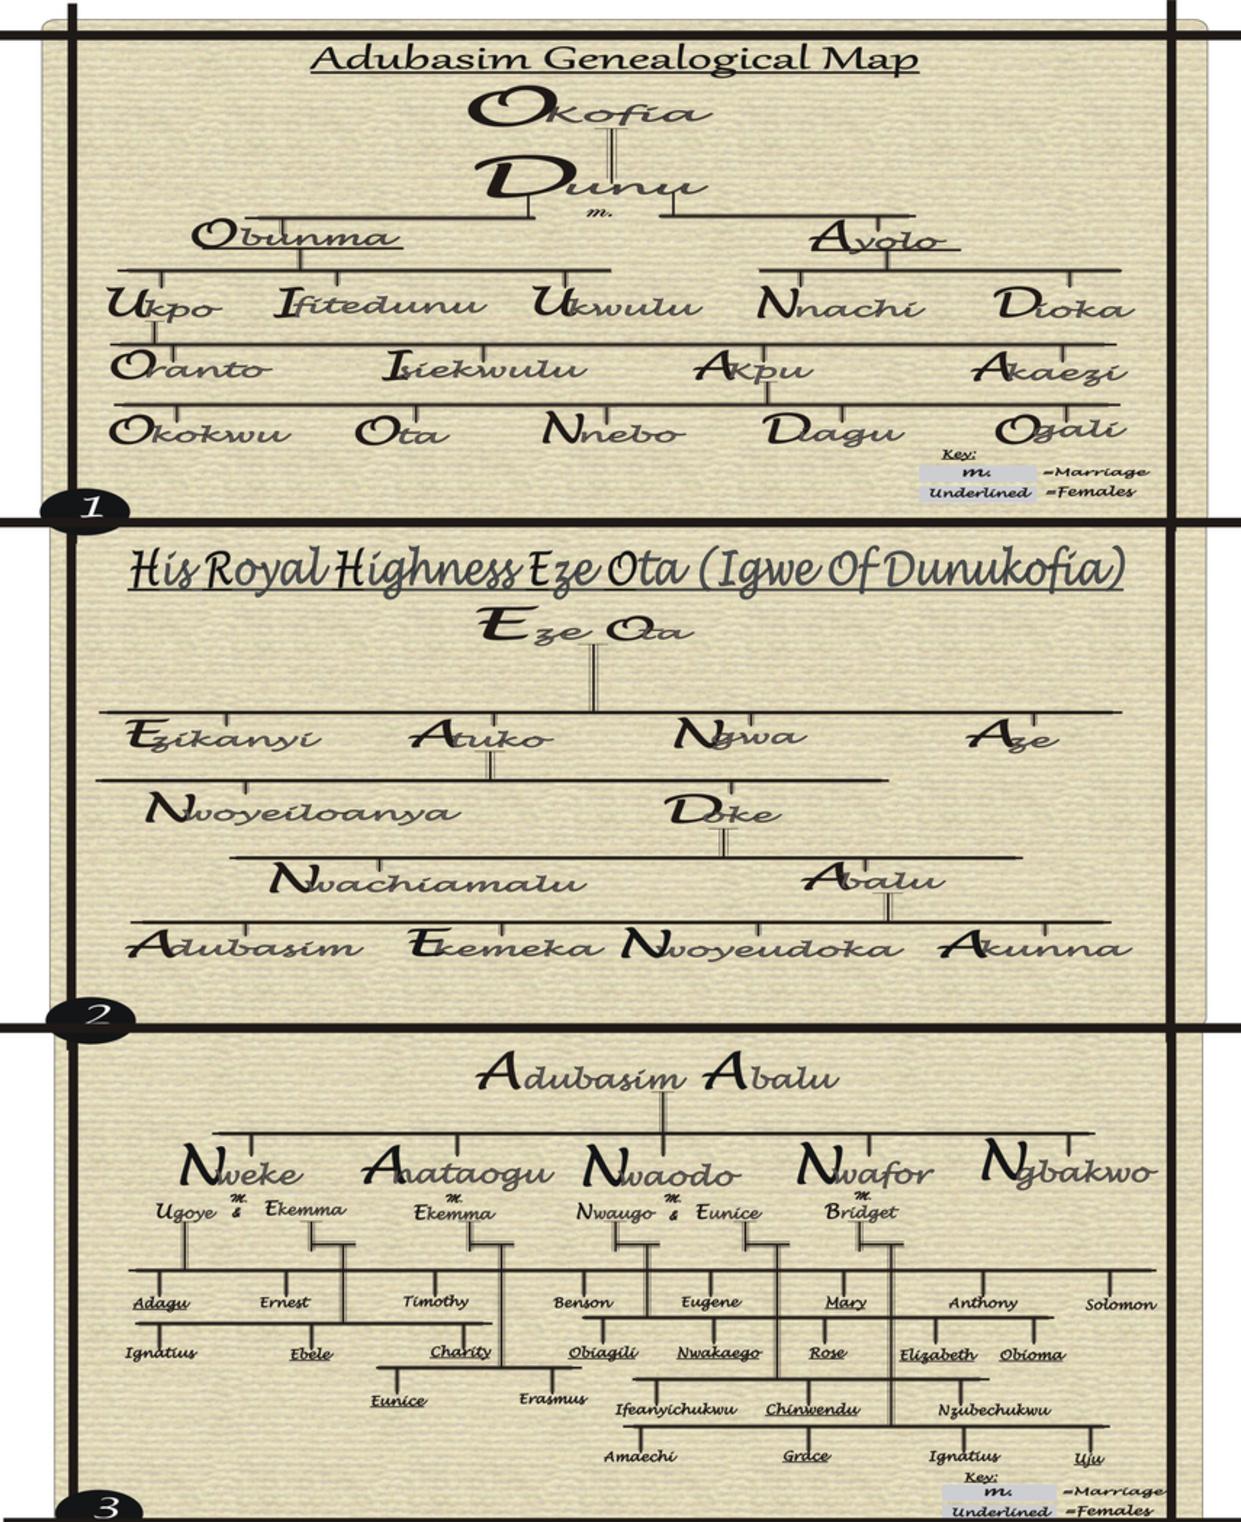 Adubasim Genealogical Map
Okofia
Dunu
m.
Obunma Ayolo
Ukpo Ifitedunu Ukwulu Nnachi Dioka
Oranto Isiekwulu Akpu Akaezi
Okokwu Ota Nnebo Dagu Ogali
Key:
m. =Marriage
Underlined =Females
1
His Royal Highness Eze Ota (Igwe Of Dunukofia)
Eze Ota
Ezikanyi Atuko Ngwa Aze
Nwoyeiloanya Doke
Nwachiamalu Abalu
Adubasim Ekemeka Nwoyeudoka Akunna
2
Adubasim Abalu
Nweke Anataogu Nwaodo Nwafor Ngbakwo
m. m. m. m.
Ugoye & Ekemma Ekemma Nwaugo & Eunice Bridget
Adagu Ernest Timothy Benson Eugene Mary Anthony Solomon
Ignatius Ebele Charity Obiagili Nwakaego Rose Elizabeth Obioma
Eunice Erasmus Ifeanyichukwu Chinwendu Nzubechukwu
Amaechi Grace Ignatius Uju
Key:
m. =Marriage
Underlined =Females
3